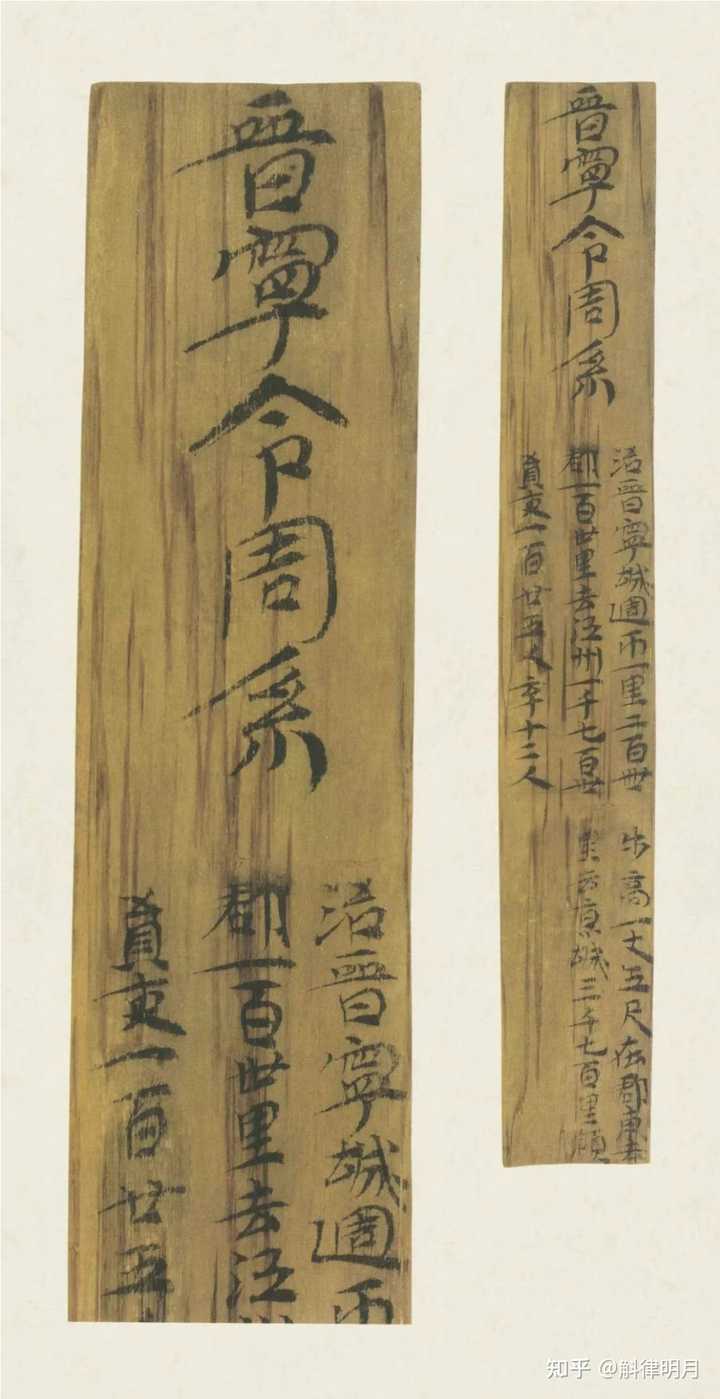 晉寧令周系
治晉寧城週帀
郡一百卅里去江州
員吏一百廿五人
晉寧令周系
治晉寧城週帀一里二百卌步高一丈五尺在郡東去
郡一百卅里去江州一千七百卅里去京城三千七百里領
員吏一百廿五人卒十二人
知乎 @斛律明月